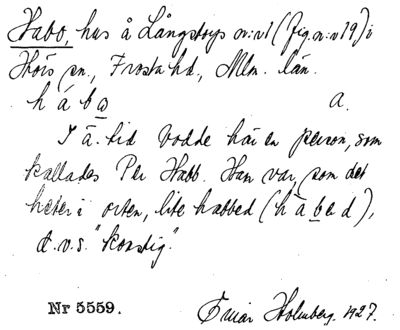 Habo, hus å Långstorps nr:n1 (fig.n:n 19) i
Höörs sn., Frosta hd., Mlm. län.
h á b a a.
I ä. tid bodde här en person, som
kallades Per Habb. Han var, som det
heter i orten, lite habbed (h á b e d),
d.v.s. "konstig".
Nr 5559. Einar Holmberg. 1927.